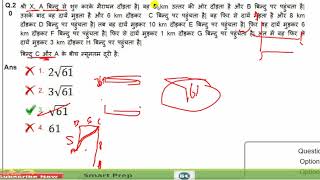 Q.2 श्री X, A बिन्दु से शुरू करके मैराथन दौड़ता है। वह 5 km उत्तर की ओर दौड़ता है और B बिन्दु पर पहुंचता है।
0 उसके बाद वह दायें मुड़ता है और 6 km दौड़कर C बिन्दु पर पहुंचता है। वह फिर से दायें मुड़ता है और 8 km
दौड़कर D बिन्दु पर पहुंचता है। तब वह दायें मुड़कर 10 km दौड़कर E बिन्दु पर पहुंचता है। फिर वह दायें मुड़कर 6
km दौड़कर F बिन्दु पर पहुंचता है। फिर वह दायें मुड़कर 1 km दौड़कर G बिन्दु पर पहुंचता है, अंत में वह फिर से
दायें मुड़कर 3 km दौड़कर H बिन्दु पर पहुंचता है।
बिन्दु C और A के बीच न्यूनतम दूरी है:
Ans 1. 2√61
2. 3√61
3. √61
4. 61
√61
B 6 C
5
Question
Option
Option
Subscribe Now
Smart Prep